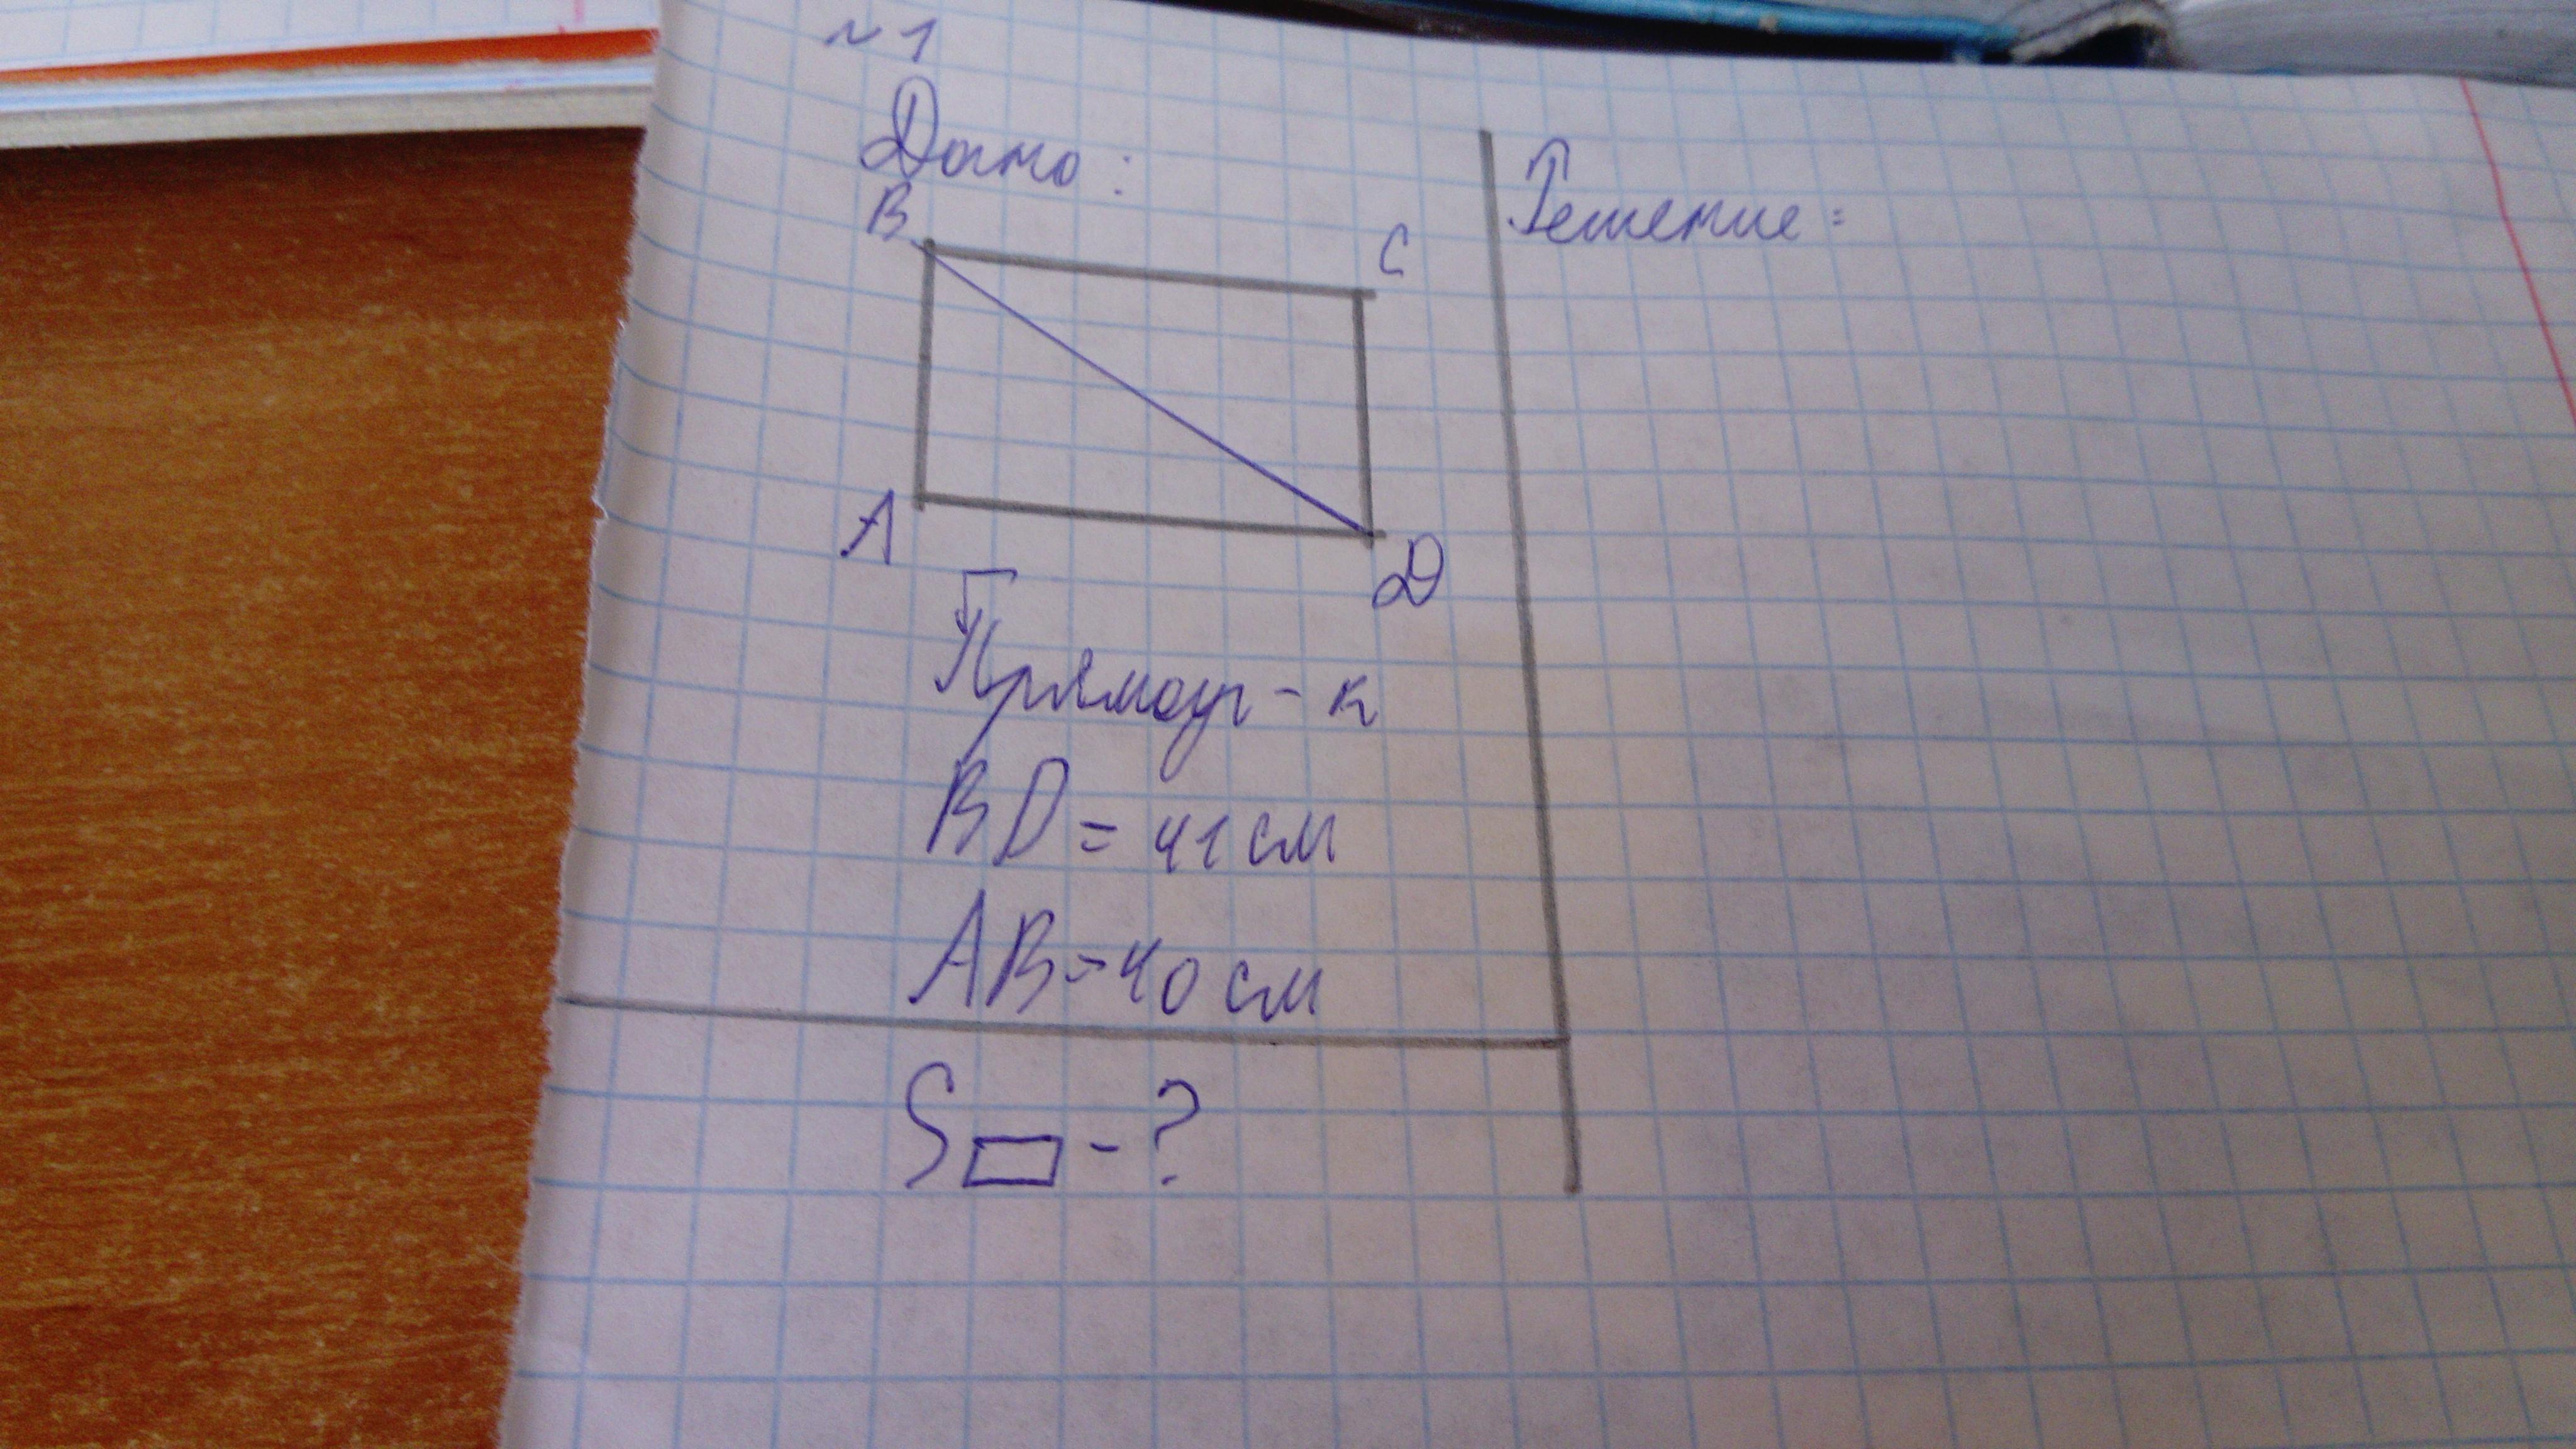 ~ 1
Дано:
Решение:
B
C
A
D
Прямоуг-к
BD = 41 см
AB = 40 см
S▭ - ?